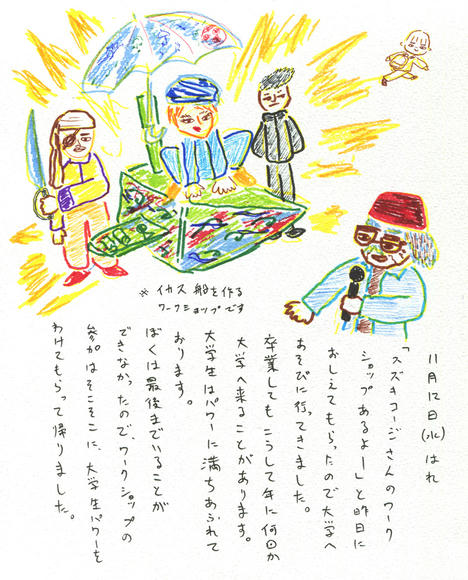 ※イカス船を作る
ワークショップです
11月12日(水)はれ
「スズキコージさんのワーク
ショップあるよー」と昨日に
おしえてもらったので大学へ
あそびに行ってきました。
卒業してもこうして年に何回か
大学へ来ることがあります。
大学生はパワーに満ちあふれて
おります。
ぼくは最後までいることが
できなかったので、ワークショップの
参加はそこそこに、大学生パワーを
わけてもらって帰りました。